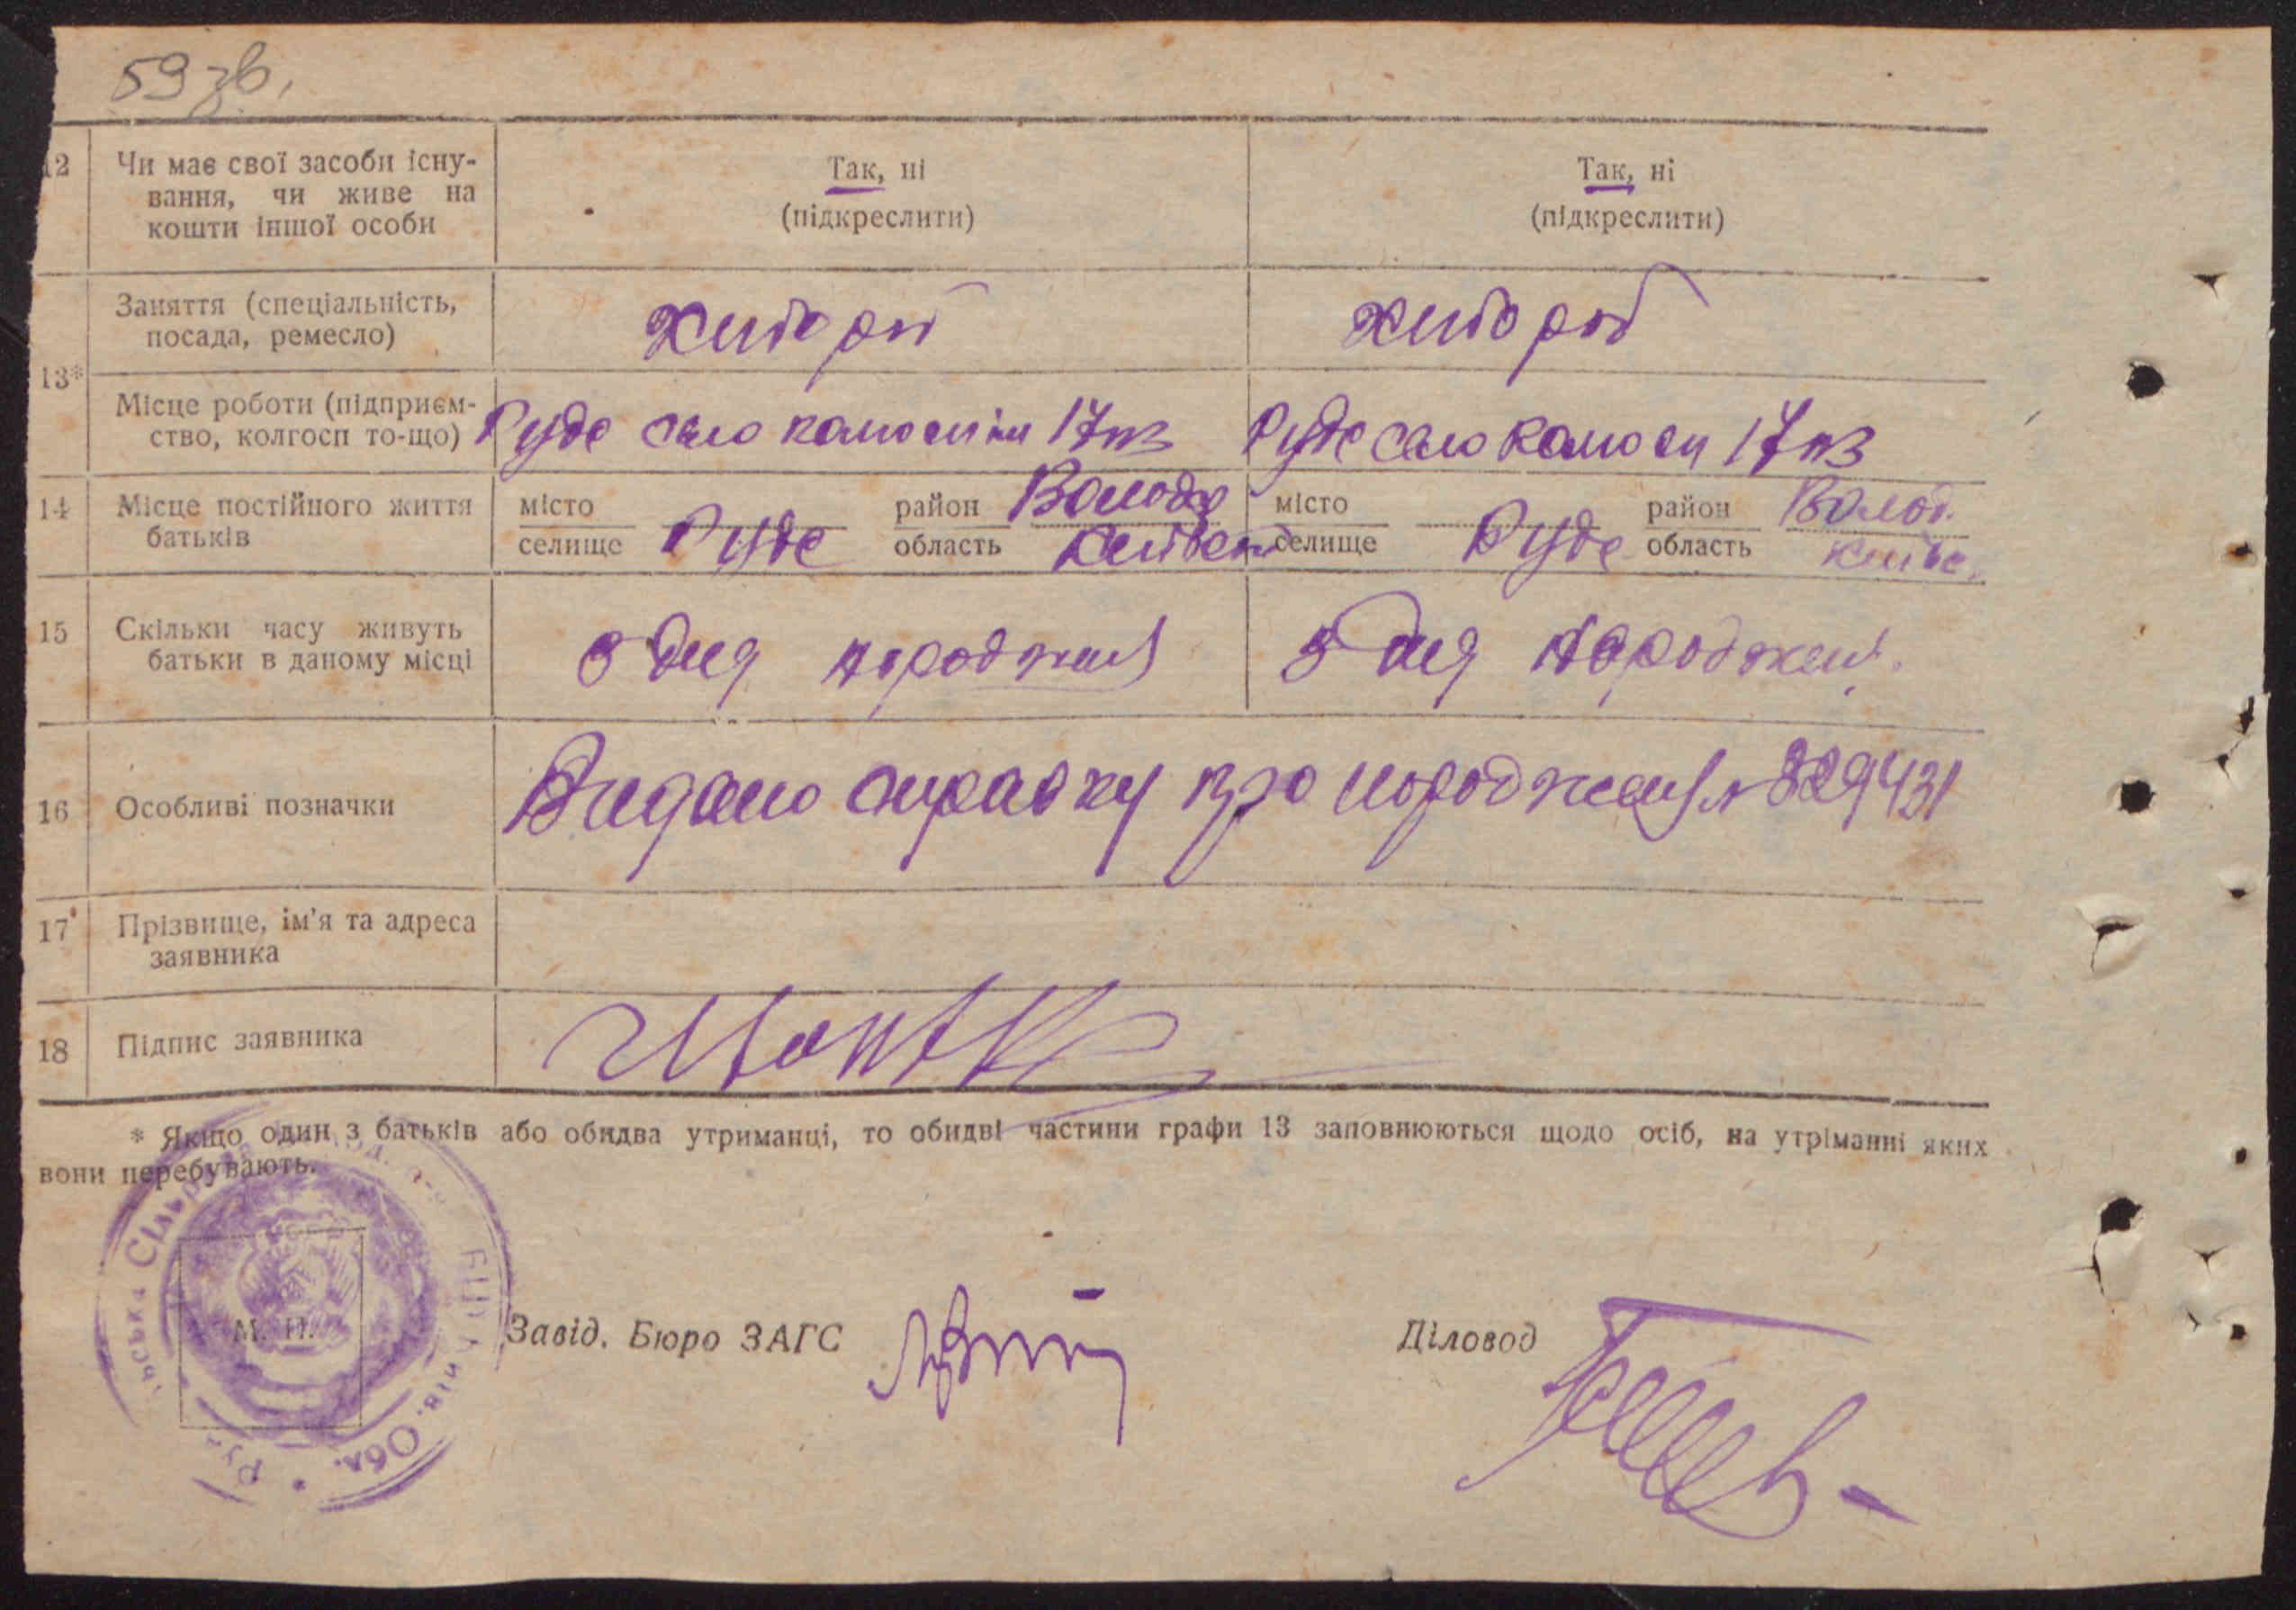 59 зв.
12 Чи має свої засоби існу-
вання, чи живе на
кошти іншої особи
Так, ні
(підкреслити)
Так, ні
(підкреслити)
13*
Заняття (спеціальність,
посада, ремесло)
хлібороб
хлібороб
Місце роботи (підприєм-
ство, колгосп то-що)
Руде село 17
Руде село 17
14 Місце постійного життя
батьків
місто
селище
Руде
район
область
Волод
місто
селище
Руде
район
область
Волод.
15 Скільки часу живуть
батьки в даному місці
з дня
з дня
16 Особливі позначки
Видано справку про 829431
17 Прізвище, ім'я та адреса
заявника
18 Підпис заявника
* Якщо один з батьків або обидва утриманці, то обидві частини графи 13 заповнюються щодо осіб, на утріманні яких
вони перебувають.
М. П.
Обл.
Завід. Бюро ЗАГС
Діловод